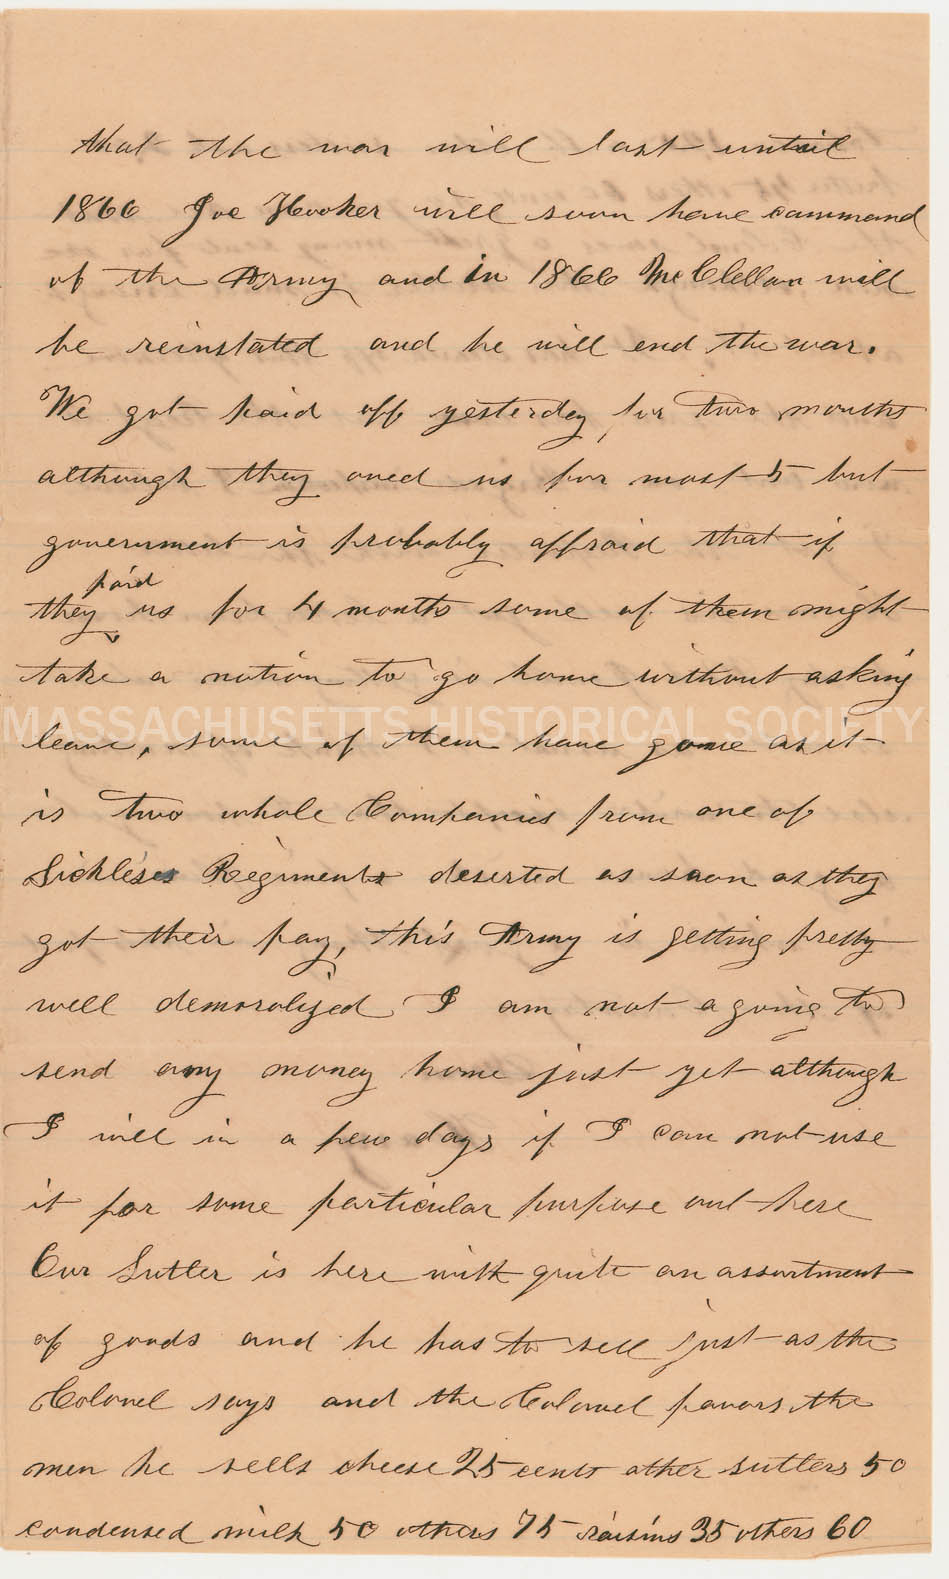 that the war will last until
1866 Joe Hooker will soon have command
of the Army and in 1866 McClellan will
be reinstated and he will end the war.
We got paid off yesterday for two months
although they owed us for most 5 but
government is probably affraid that if
paid
they us for 4 months some of them might
take a notion to go home without asking
MASSACHUSETTS HISTORICAL SOCIETY
leave, some of them have gone as it
is two whole Companies from one of
Sickleses Regiments deserted as soon as they
got their pay, this Army is getting pretty
well demoralized I am not a going to
send any money home just yet although
I will in a few days if I can not use
it for some particular purpose out here
Our Sutler is here with quite an assortment
of goods and he has to sell just as the
Colonel says and the Colonel favors the
men he sells cheese 25 cents other sutlers 50
condensed milk 50 others 75 raisins 35 others 60